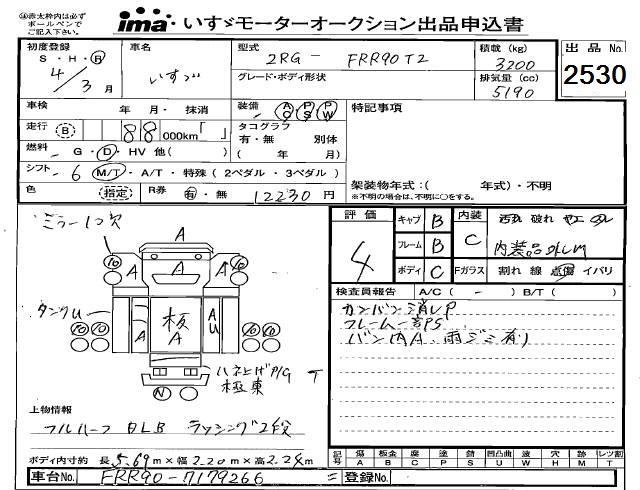 ㊟赤太枠内は必ず
ボールペンで
ご記入下さい。
ima・いすゞモーターオークション出品申込書
初度登録
S・H・R
4/3月
車名
いすゞ
型式
2RG - FRR90T2
グレード・ボディ形状
積載(kg)
3200
排気量(cc)
5190
出品No.
2530
車検 年 月・抹消
装備 AC PS PW
特記事項
走行 (B) 88 000km「 」
タコグラフ
有・無 別体
( 年 月)
燃料 - G・D・HV 他( )
シフト - 6 M/T・A/T・特殊(2ペダル・3ペダル)
架装物年式:( 年式)・不明
※不明の場合は、不明に○をする。
色 指定 R券 有・無 12230円
評価
4
キャブ B
フレーム B
ボディ C
内装 C
汚れ 破れ
内装品外し
Fガラス 割れ 線 点傷 イバリ
検査員報告 A/C( - ) B/T( )
カンバン消しP
フレーム一部PS
バン内A 雨ジミ有り
ミラー1つ欠
A
10 A A A 10
タンクU
10 10 A 板 A A U 10 10
ハネ上げP/G T
極東
N N
上物情報
フルハーフ ラッシング2段
ボディ内寸約 長5.69m×幅2.20m×高2.24m
記号 傷A 板金B 腐C 塗P 錆S 凹凸曲U 波W 穴H 跡M レツ割T
車台No. FRR90-7179266
登録No.